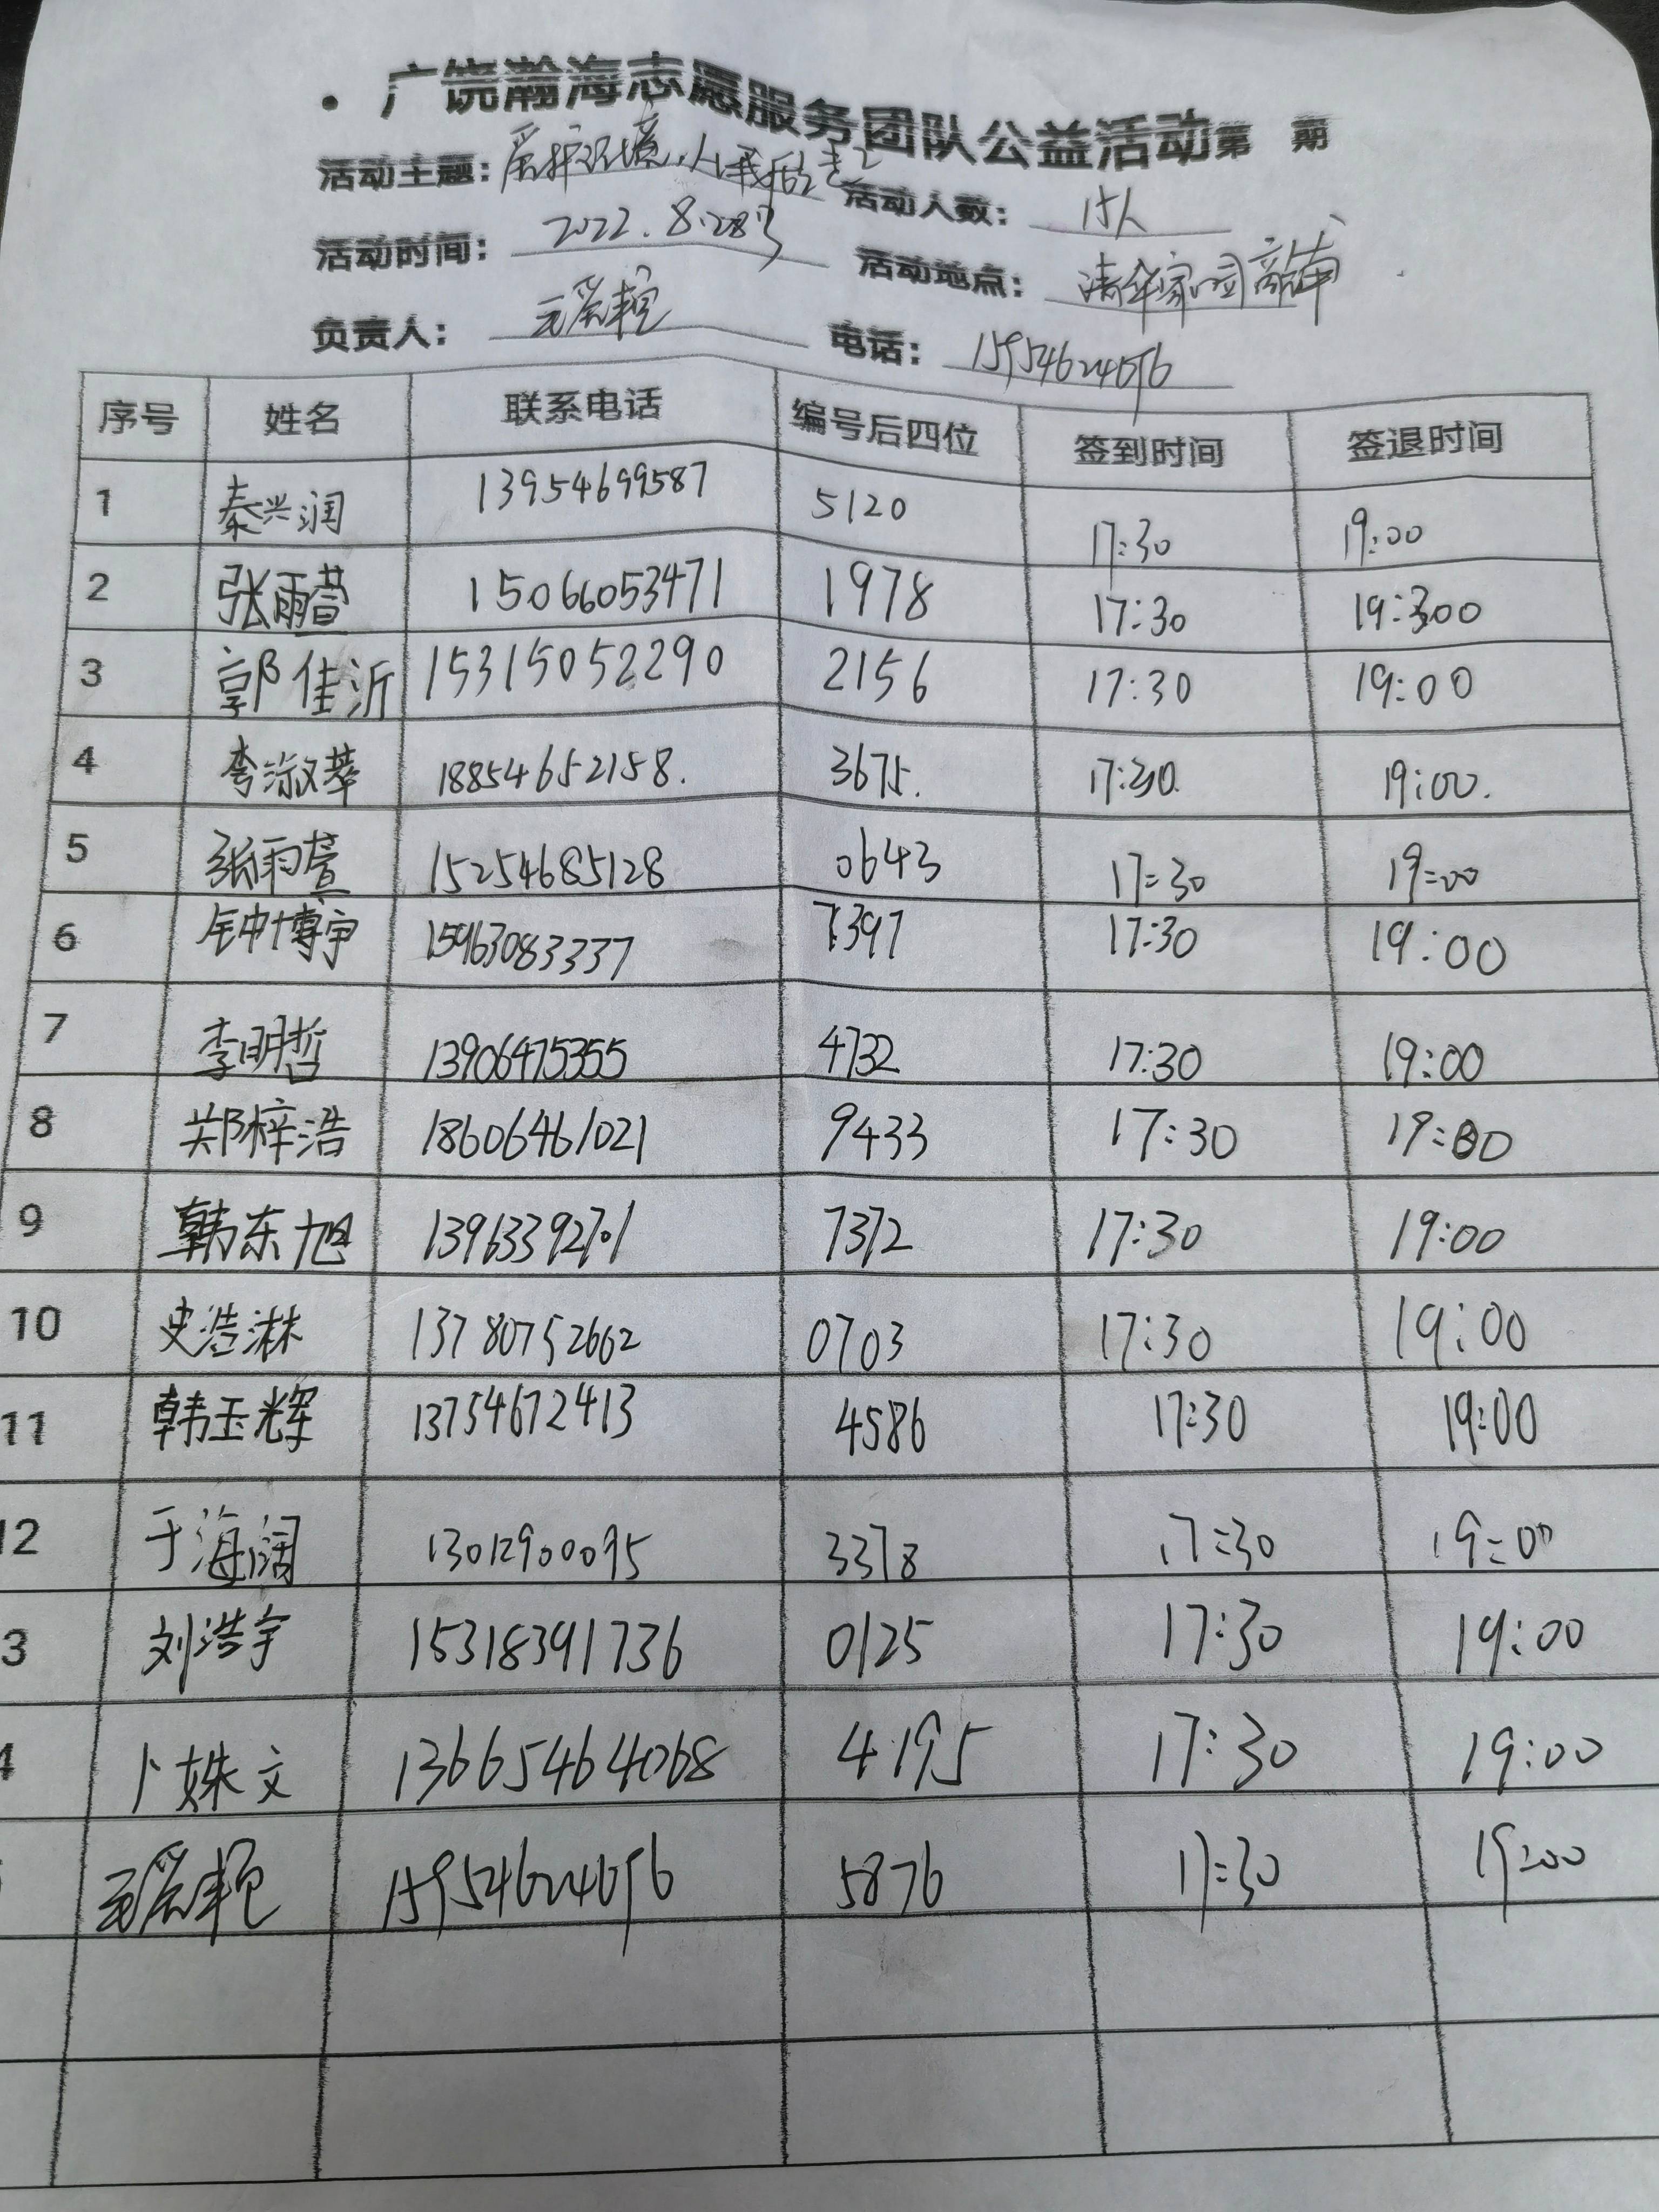 ·广饶瀚海志愿服务团队公益活动第 期
活动主题：爱护环境，从我做起 活动人数：15人
活动时间：2022.8.28号 活动地点：清华家园
负责人： 电话：15954624696
序号 姓名 联系电话 编号后四位 签到时间 签退时间
1 秦兴润 13954699587 5120 17:30 19:00
2 张雨萱 15066053471 1978 17:30 19:300
3 郭佳沂 15315052290 2156 17:30 19:00
4 李淑苹 18854652158. 3675. 17:30. 19:00.
5 张雨萱 15254685128 0643 17:30 19:00
6 钟博宇 15963083337 7397 17:30 19:00
7 李明哲 13906475355 4732 17:30 19:00
8 郑梓浩 18606461021 9433 17:30 19:00
9 韩东旭 13963392701 7372 17:30 19:00
10 史浩淋 13780752662 0703 17:30 19:00
11 韩玉辉 13754672413 4586 17:30 19:00
12 于海阔 13012900095 3378 17:30 19:00
3 刘浩宇 15318391736 0125 17:30 19:00
4 卜姝文 13665464068 4195 17:30 19:00
15954624696 5876 17:30 19:00